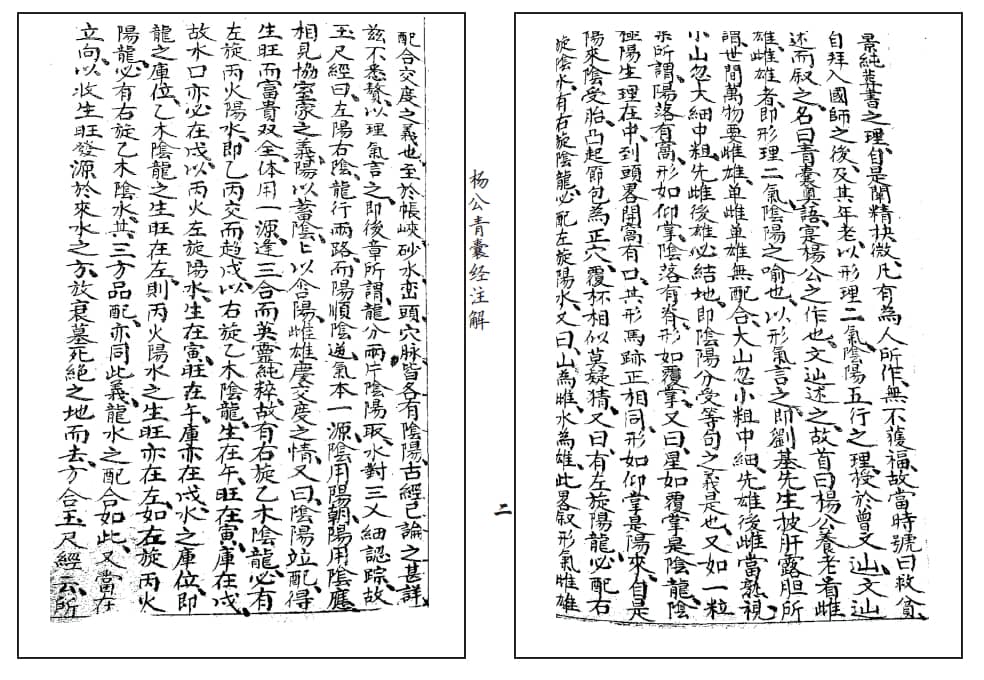 景純葬書之理、自是闡精抉微、凡有為人所作、無不獲福、故當時號曰救貧、
自拜入國師之後、及其年老、以形理二氣、陰陽五行之理、授於曾文辿、文辿
述而叙之、名曰青囊奧語、寔楊公之作也、文辿述之、故首曰楊公養老看雌
雄、雌雄者、即形理二氣陰陽之喻也、以形氣言之、即劉基先生披肝露胆所
謂世間萬物要雌雄、单雌单雄無配合、大山忽小粗中細、先雄後雌當熟視、
小山忽大細中粗、先雌後雄必結地、即陰陽分受等句之義是也、又如一粒
粟所謂、陽落有窩、形如仰掌、陰落有脊、形如覆掌、又曰、星如覆掌是陰龍、陰
極陽生理在中、到頭畧開窩有口、其形馬跡正相同、形如仰掌是陽來、自是
陽來陰受胎、凸起節包為正穴、覆杯相似莫疑猜、又曰、有左旋陽龍、必配右
旋陰水、有右旋陰龍、必配左旋陽水、又曰、山為雌、水為雄、此畧叙形氣雌雄
杨公青囊经注解
二
配合交度之義也、至於帳峽砂水巒頭穴脉、皆各有陰陽、古經已論之甚詳、
兹不悉贅、以理氣言之、即後章所謂、龍分兩片陰陽取、水對三义細認踪、故
玉尺經曰、左陽右陰、龍行兩路、而陽順陰逆、氣本一源、陰用陽朝、陽用陰應、
相見協室家之義、陽以蓄陰、陰以含陽、雌雄慶交度之情、又曰、陰陽竝配、得
生旺而富貴双全、体用一源、逢三合而英靈純粹、故有右旋乙木陰龍、必有
左旋丙火陽水、即乙丙交而趨戌、以右旋乙木陰龍、生在午、旺在寅、庫在戌、
故水口亦必在戌、以丙火左旋陽水、生在寅、旺在午、庫亦在戌、水之庫位、即
龍之庫位、乙木陰龍之生旺在左、則丙火陽水之生旺亦在左、如左旋丙火
陽龍、必有右旋乙木陰水、其三方品配、亦同此義、龍水之配合如此、又當在
立向、以收生旺發源於來水之方、放衰墓死絶之地而去、方合玉尺經云、所